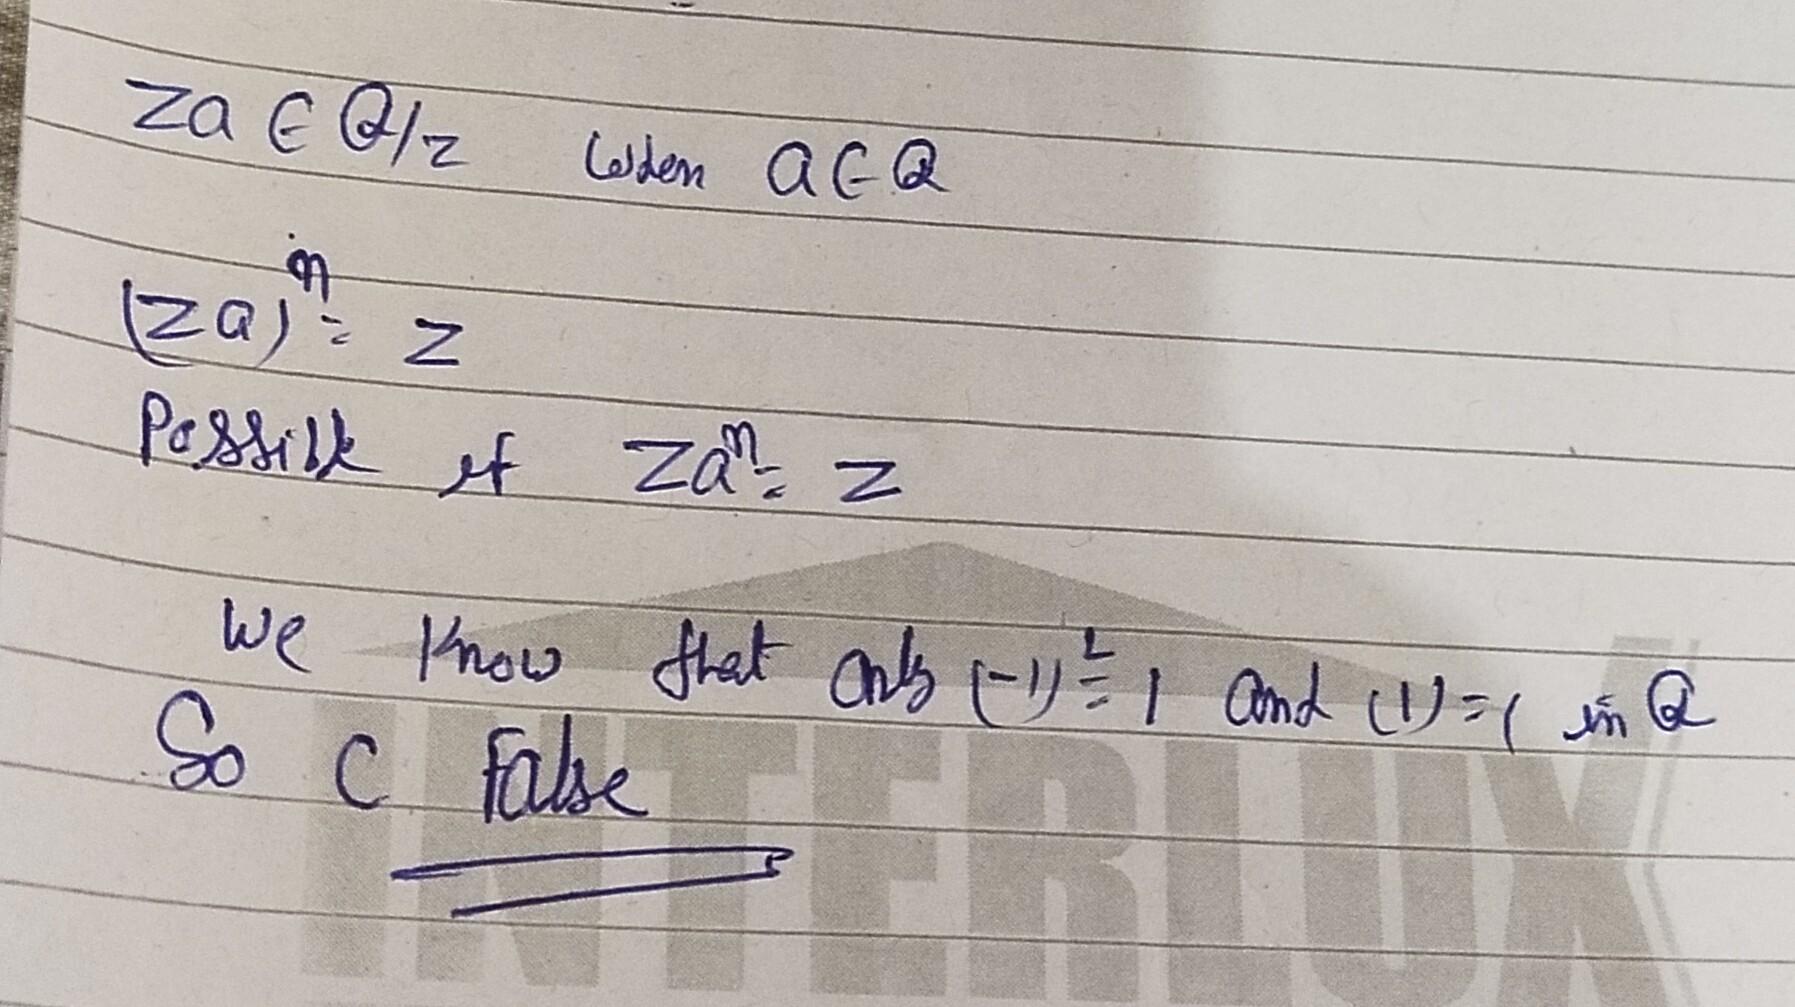 Za ∈ Q/z when a ∈ Q
(za)ⁿ = z
Possible if Zaⁿ = z
We know that only (-1)² = 1 and (1) = 1 in Q
So C False
INTERLUX